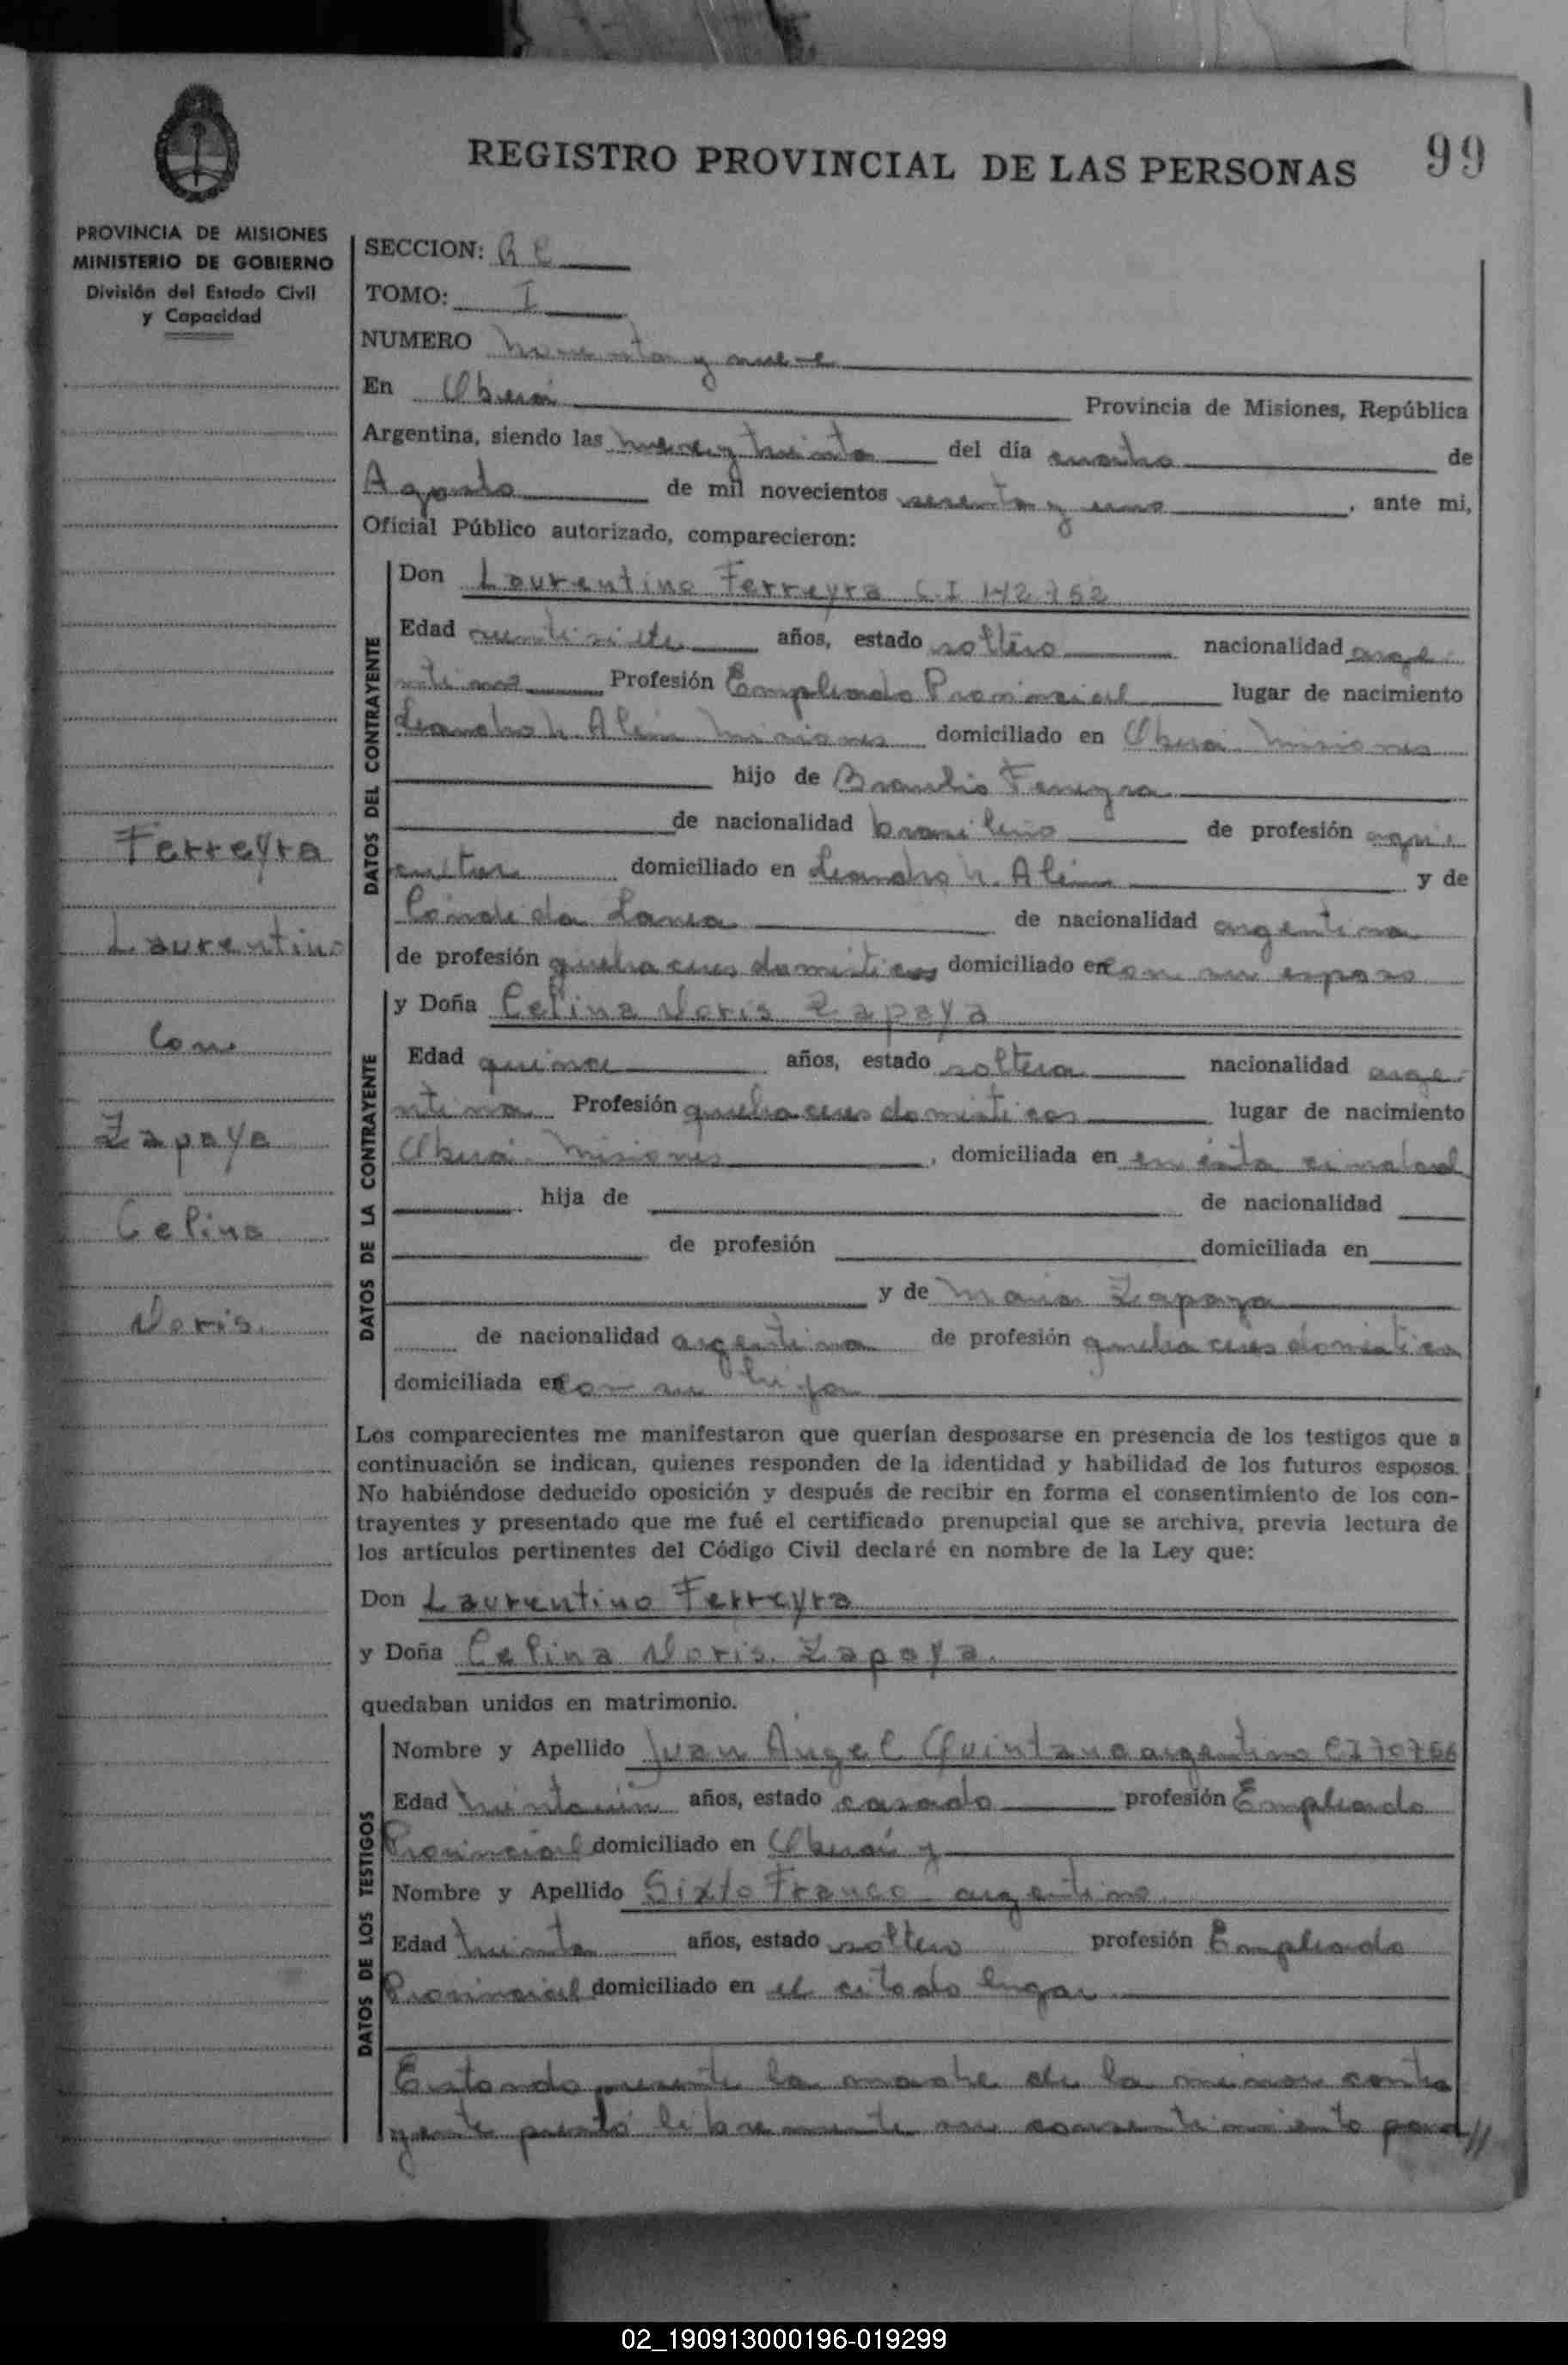 REGISTRO PROVINCIAL DE LAS PERSONAS 99
PROVINCIA DE MISIONES
MINISTERIO DE GOBIERNO
División del Estado Civil
y Capacidad
Ferreyra
Laurentino
Con
Zapaya
Celina
Doris.
SECCION: R C
TOMO: I
NUMERO noventa y nueve
En Oberá Provincia de Misiones, República
Argentina, siendo las nueve y treinta del día cuatro de
Agosto de mil novecientos sesenta y uno, ante mi,
Oficial Público autorizado, comparecieron:
DATOS DEL CONTRAYENTE
Don Laurentino Ferreyra C.I 142.752
Edad veintisiete años, estado soltero nacionalidad arge
ntina Profesión Empleado Provincial lugar de nacimiento
Leandro N. Alem Misiones domiciliado en Oberá Misiones
hijo de Braulio Ferreyra
de nacionalidad brasileño de profesión agri
cultor domiciliado en Leandro N. Alem y de
Cándida de nacionalidad argentina
de profesión quehaceres domesticos domiciliado en con su esposo
DATOS DE LA CONTRAYENTE
y Doña Celina Doris Zapaya
Edad quince años, estado soltera nacionalidad arge
ntina Profesión quehaceres domesticos lugar de nacimiento
Oberá Misiones, domiciliada en en ésta ciudad
hija de de nacionalidad
de profesión domiciliada en
y de Maria Zapaya
de nacionalidad argentina de profesión quehaceres domesticos
domiciliada en con su hija
Los comparecientes me manifestaron que querían desposarse en presencia de los testigos que a
continuación se indican, quienes responden de la identidad y habilidad de los futuros esposos.
No habiéndose deducido oposición y después de recibir en forma el consentimiento de los con-
trayentes y presentado que me fué el certificado prenupcial que se archiva, previa lectura de
los artículos pertinentes del Código Civil declaré en nombre de la Ley que:
Don Laurentino Ferreyra
y Doña Celina Doris. Zapaya.
quedaban unidos en matrimonio.
DATOS DE LOS TESTIGOS
Nombre y Apellido Juan Angel Quintana argentino CI 70766
Edad treintaiún años, estado casado profesión Empleado
Provincial domiciliado en Oberá y
Nombre y Apellido Sixto Franco argentino
Edad treinta años, estado soltero profesión Empleado
Provincial domiciliado en el citado lugar
Estando presente la madre de la menor contra
yente prestó libremente su consentimiento para//
02_190913000196-019299